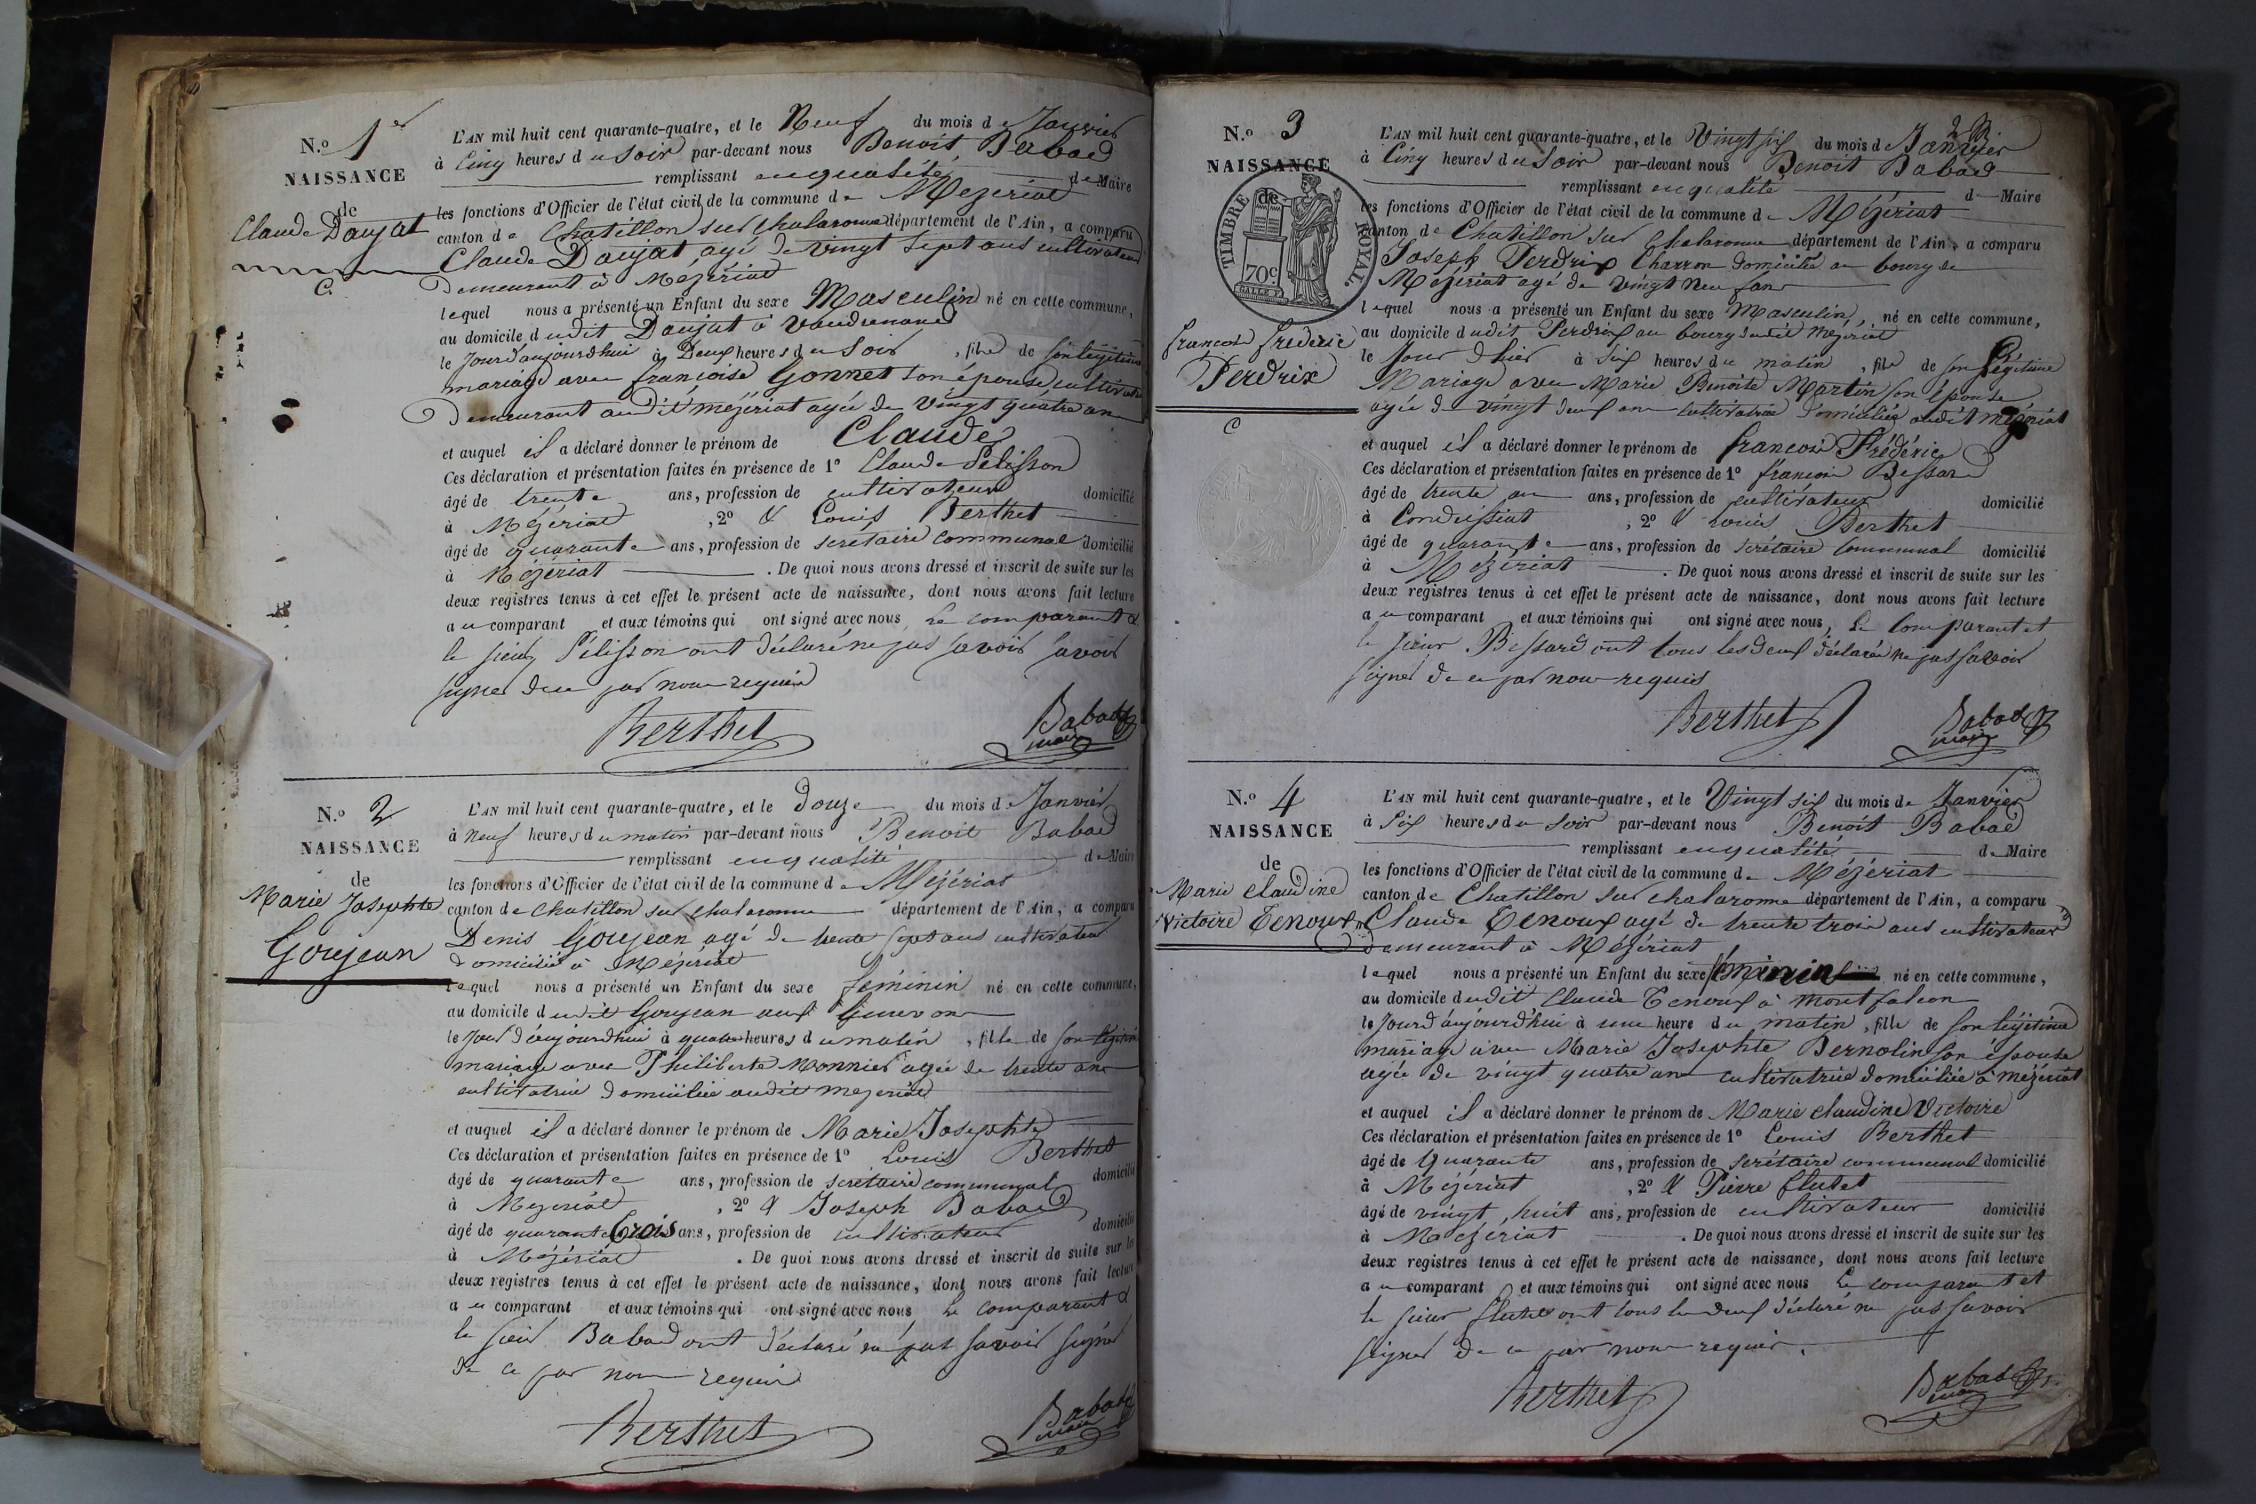 N.o 1er
NAISSANCE
de
Claude Daujat
C.
L'AN mil huit cent quarante-quatre, et le Neuf du mois de Janvier
à Cinq heures du Soir par-devant nous Benoit Babad
remplissant en qualité de Maire
les fonctions d'Officier de l'état civil de la commune de Mezeriat
canton de Chatillon sur Chalaronne département de l'Ain, a comparu
Claude Daujat, agé de vingt sept ans cultivateur
demeurant à Mezériat
lequel nous a présenté un Enfant du sexe Masculin né en cette commune,
au domicile dudit Daujat à
le Jour d'aujourdhui à Deux heures du Soir, fils de son légitime
mariage avec francoise Gonnet son épouse cultivatrice
demeurant audit mézériat agée de vingt quatre ans
et auquel il a déclaré donner le prénom de Claude
Ces déclaration et présentation faites en présence de 1o Claude Pélisson
âgé de trente ans, profession de cultivateur domicilié
à Mézériat, 2o & Louis Berthet
âgé de quarante ans, profession de secrétaire communal domicilié
à Mézériat. De quoi nous avons dressé et inscrit de suite sur les
deux registres tenus à cet effet le présent acte de naissance, dont nous avons fait lecture
au comparant et aux témoins qui ont signé avec nous Le comparant &
le sieur Pélisson ont déclaré ne pas savoir savoir
signer de ce par nous requis
Berthet Babad
maire
N.o 2
NAISSANCE
de
Marie Josephte
Goujean
L'AN mil huit cent quarante-quatre, et le douze du mois de Janvier
à neuf heures du matin par-devant nous Benoit Babad
remplissant en qualité de Maire
les fonctions d'Officier de l'état civil de la commune de Mézériat
canton de Chatillon sur chalaronne département de l'Ain, a comparu
Denis Goujean agé de trente sept ans cultivateur
domicilié à Mézériat
lequel nous a présenté un Enfant du sexe féminin né en cette commune,
au domicile dudit Goujean aux
le jour d'aujourdhui à quatre heures du matin, fille de son légitime
mariage avec Philiberte Monnier agée de trente ans
cultivatrice domiciliée audit mezeriat
et auquel il a déclaré donner le prénom de Marie Josephte
Ces déclaration et présentation faites en présence de 1o Louis Berthet
âgé de quarante ans, profession de secrétaire communal domicilié
à Mezeriat, 2o & Joseph Babad
âgé de quarante trois ans, profession de cultivateur domicilié
à Mézériat. De quoi nous avons dressé et inscrit de suite sur les
deux registres tenus à cet effet le présent acte de naissance, dont nous avons fait lecture
au comparant et aux témoins qui ont signé avec nous Le comparant &
le sieur Babad ont déclaré ne pas savoir signer
de ce par nous requis
Berthet Babad
maire
N.o 3
NAISSANCE
de
TIMBRE ROYAL.
70c.
francois frédéric
Perdrix
C
L'AN mil huit cent quarante-quatre, et le Vingt six du mois de Janvier
à Cinq heures du Soir par-devant nous Benoit Babad
remplissant en qualité de Maire
les fonctions d'Officier de l'état civil de la commune de Mézériat
canton de Chatillon sur Chalaronne département de l'Ain, a comparu
Joseph Perdrix Charron domicilié au bourg de
Mézériat agé de vingt neuf ans
lequel nous a présenté un Enfant du sexe Masculin, né en cette commune,
au domicile dudit Perdrix au bourg dudit Mézériat
le jour d'hier à six heures du matin, fils de son Légitime
Mariage avec Marie Benoite Martin son épouse
agée de vingt deux ans cultivatrice domiciliée audit mézériat
et auquel il a déclaré donner le prénom de francois Frédéric
Ces déclaration et présentation faites en présence de 1o francois Bessard
âgé de trente ans, profession de cultivateur domicilié
à Condeissiat, 2o & Louis Berthet
âgé de quarante ans, profession de secrétaire Communal domicilié
à Mézériat. De quoi nous avons dressé et inscrit de suite sur les
deux registres tenus à cet effet le présent acte de naissance, dont nous avons fait lecture
au comparant et aux témoins qui ont signé avec nous, Le Comparant et
le sieur Bessard ont tous les deux déclaré ne pas savoir
signer de ce par nous requis
Berthet Babad
maire
N.o 4
NAISSANCE
de
Marie claudine
Victoire Tenoux
L'AN mil huit cent quarante-quatre, et le Vingt six du mois de Janvier
à Six heures du Soir par-devant nous Benoit Babad
remplissant en qualité de Maire
les fonctions d'Officier de l'état civil de la commune de Mézériat
canton de Chatillon sur chalaronne département de l'Ain, a comparu
Claude Tenoux agé de trente trois ans cultivateur
demeurant à Mézériat
lequel nous a présenté un Enfant du sexe féminin né en cette commune,
au domicile dudit Claude Tenoux à Montfalcon
le Jour d'aujourd'hui à une heure du matin, fille de son légitime
mariage avec Marie Josephte Bernolin son épouse
agée de vingt quatre ans cultivatrice domiciliée à mézériat
et auquel il a déclaré donner le prénom de Marie claudine Victoire
Ces déclaration et présentation faites en présence de 1o Louis Berthet
âgé de Quarante ans, profession de secrétaire communal domicilié
à Mézériat, 2o & Pierre flutet
âgé de vingt huit ans, profession de cultivateur domicilié
à Mézériat. De quoi nous avons dressé et inscrit de suite sur les
deux registres tenus à cet effet le présent acte de naissance, dont nous avons fait lecture
au comparant et aux témoins qui ont signé avec nous Le comparant et
le sieur flutet ont tous les deux déclaré ne pas savoir
signer de ce par nous requis.
Berthet Babad
maire